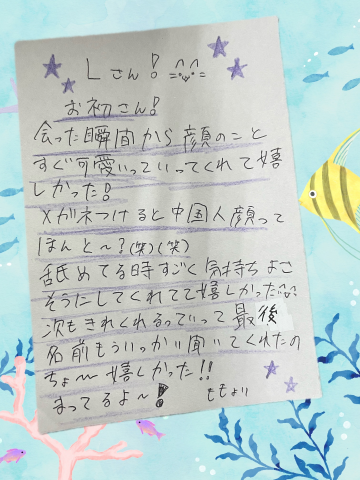 Lさん!
お初さん!
会った瞬間から顔のこと
すぐ可愛いっていってくれて嬉
しかった!
メガネつけると中国人顔って
ほんと〜?(笑)(笑)
舐めてる時すごく気持ちよさ
そうにしてくれてて嬉しかった
次もきれくれるっていって最後
名前もういっかい聞いてくれたの
ちょ〜嬉しかった!!
まってるよ〜!
ももより